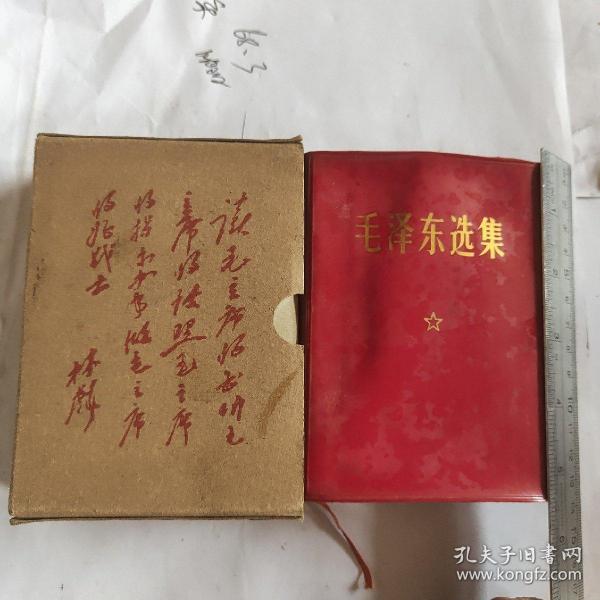 68.3
读毛主席的书听毛
主席的话照毛主席
的指示办事做毛主席
的好战士
林彪
毛泽东选集
孔夫子旧书网
www.kongfz.com